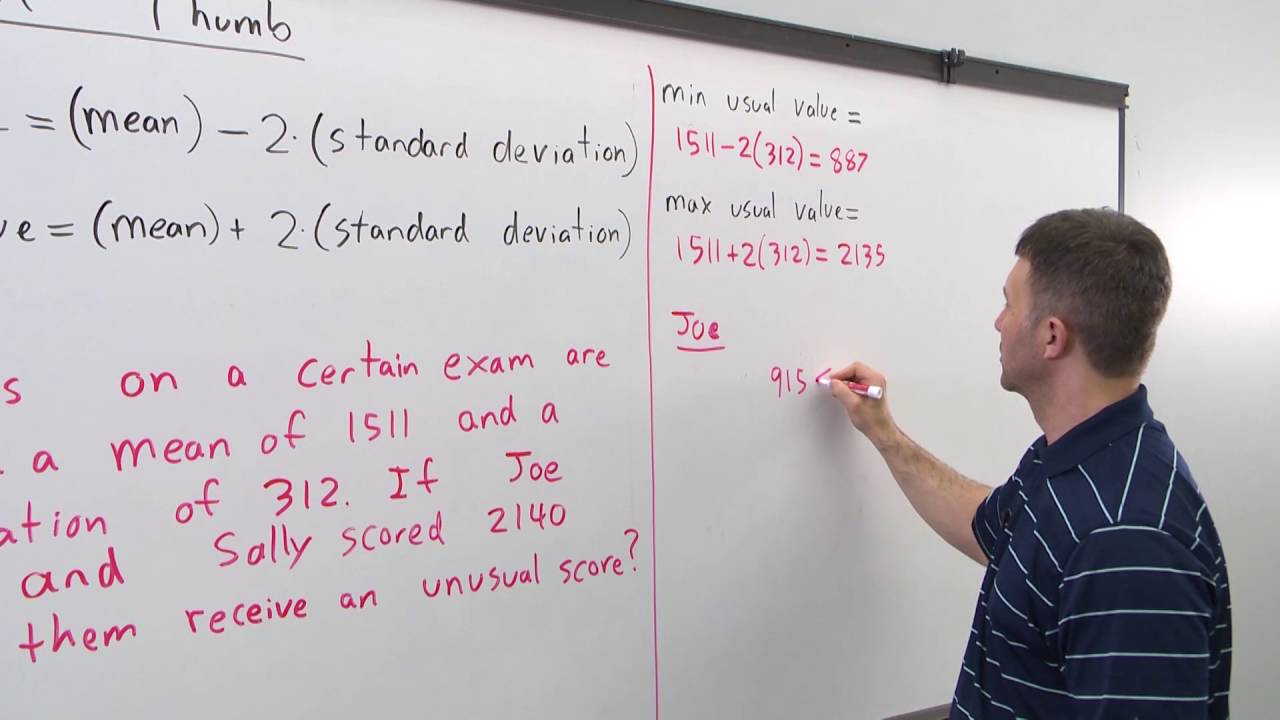 Thumb
= (mean) - 2·(standard deviation)
= (mean) + 2·(standard deviation)
on a certain exam are
a mean of 1511 and a
of 312. If Joe
and Sally scored 2140
them receive an unusual score?
min usual value =
1511-2(312)= 887
max usual value=
1511+2(312)= 2135
Joe
915 <